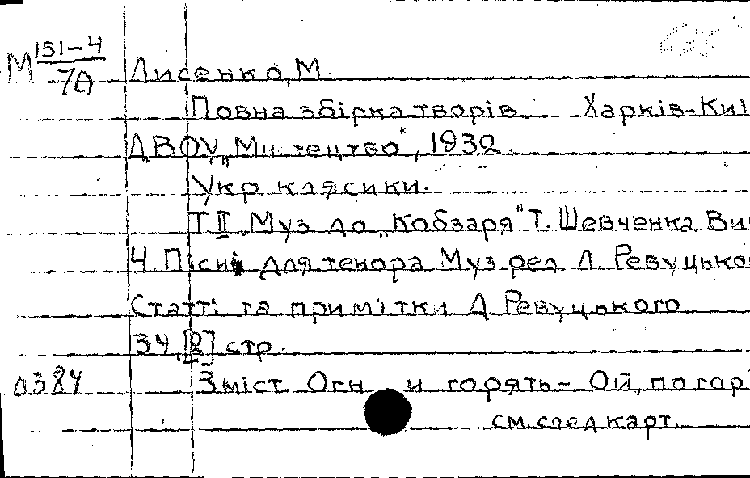 М 151-4/70 Лисенко, М.
Повна збірка творів. Харків-Киї
ДВОУ „Мистецтво", 1932.
Укр. клясики.
Т. II. Муз. до „Кобзаря" Т. Шевченка. Ви
4. Пісні для тенора. Муз. ред. Л. Ревуцько
Статті та примітки Д. Ревуцького
34, [2] стр.
0384 Зміст: Огні горять - Ой, по гор
см. след. карт.